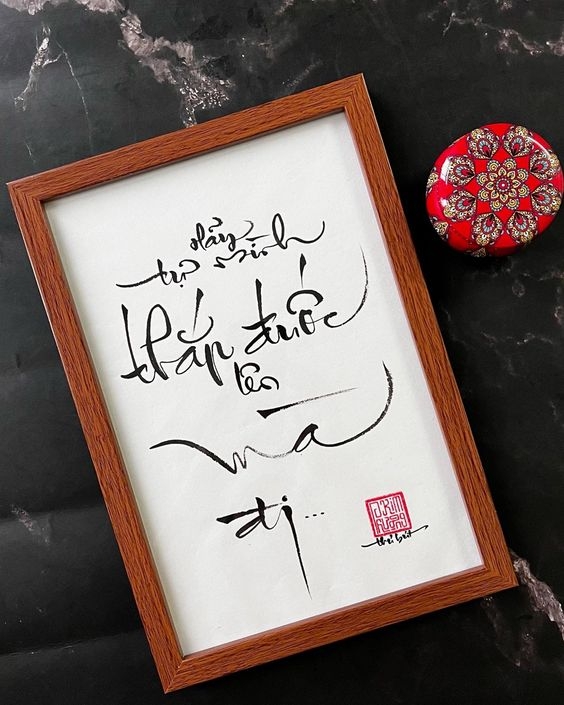 Hãy
tự mình
thắp đuốc
lên
mà
đi...
thư bút